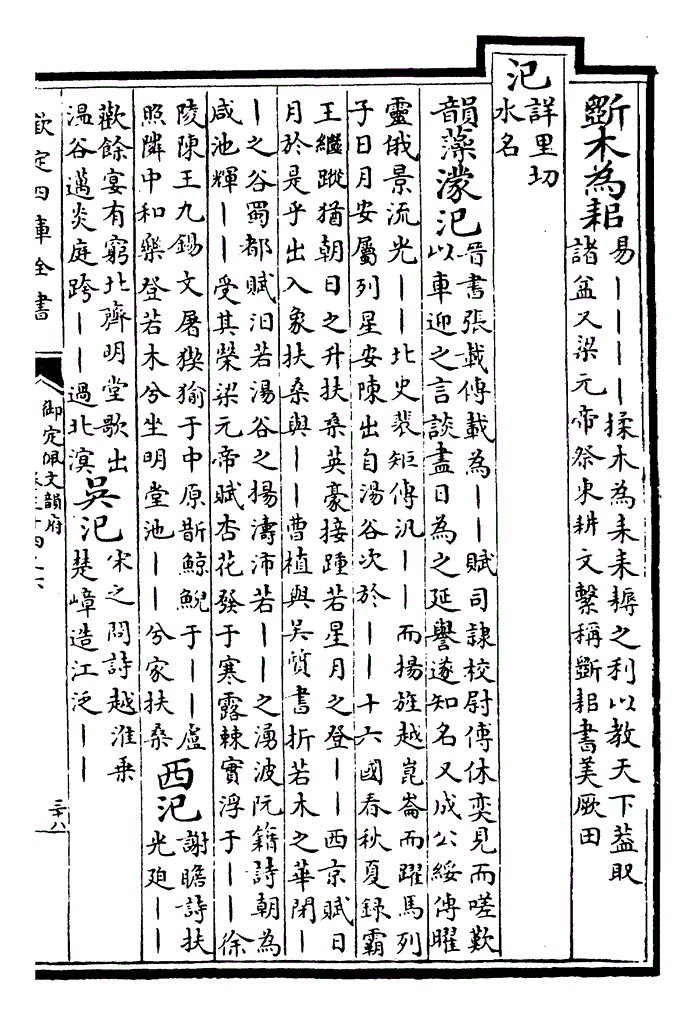 斵木為耜
易||||揉木為耒耒耨之利以教天下葢取
諸益又梁元帝祭東耕文繫稱斵耜書美厥田
汜
詳里切
水名
韻藻濛汜
晉書張載傳載為||賦司隷校尉傅休奕見而嗟歎
以車迎之言談盡日為之延譽遂知名又成公綏傳曜
靈俄景流光||北史裴矩傳汎||而揚旌越崑崙而躍馬列
子日月安屬列星安陳出自湯谷次於||十六國春秋夏録霸
王繼蹤猶朝日之升扶桑英豪接踵若星月之登||西京賦日
月於是乎出入象扶桑與||曹植與吳質書折若木之華閉|
|之谷蜀都賦汨若湯谷之揚濤沛若||之湧波阮籍詩朝為
咸池輝||受其榮梁元帝賦杏花發于寒露棘實浮于||徐
陵陳王九錫文屠猰㺄于中原斮鯨鯢于||盧
照隣中和樂登若木兮坐明堂池||兮家扶桑
西汜
謝瞻詩扶
光廹||
歡餘宴有窮北齊明堂歌出
温谷邁炎庭跨||過北溟
吳汜
宋之問詩越淮乗
楚嶂造江泛||
欽定四庫全書
御定佩文韻府
三十八